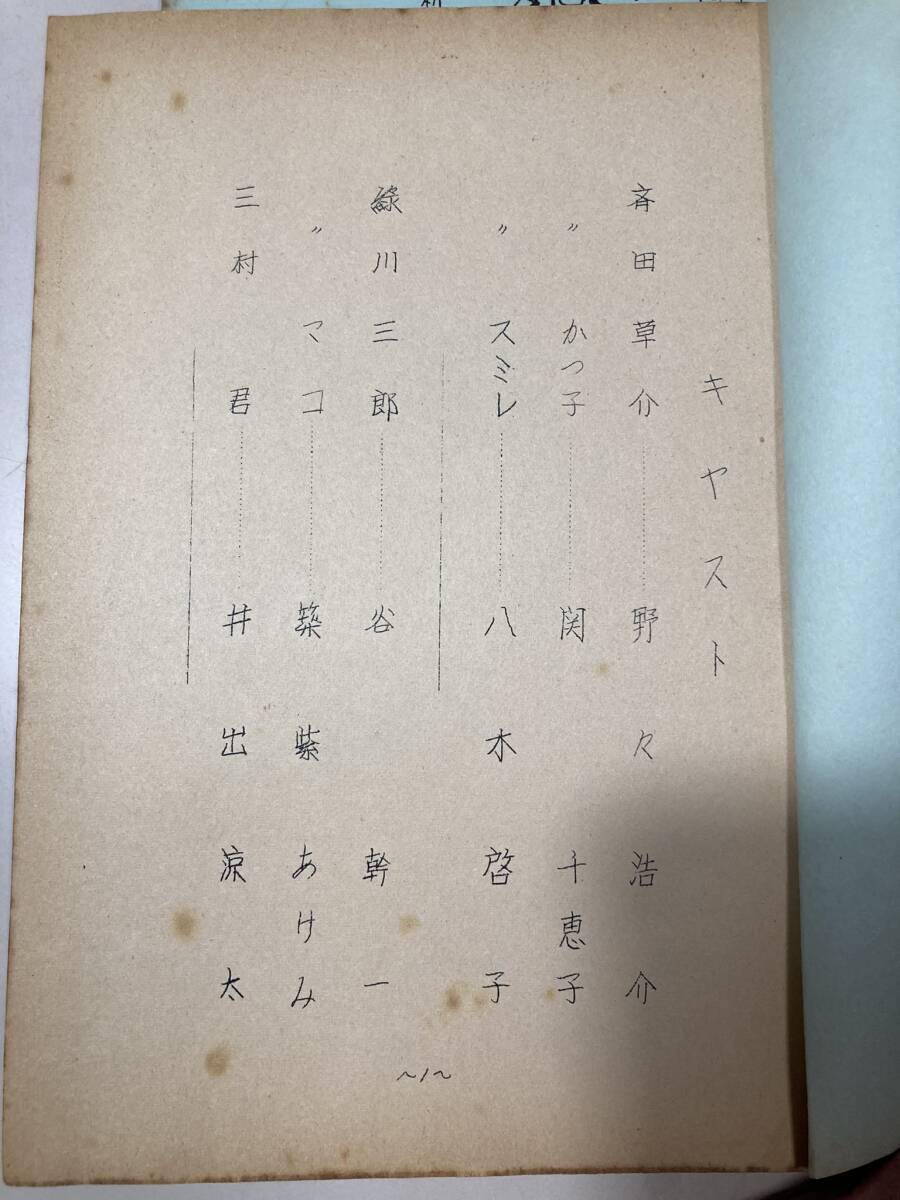 キヤスト
斉田草介……………野々浩介
〃かつ子……………関千恵子
〃スミレ……………八木啓子
綠川三郎……………谷幹一
〃マコ……………築紫あけみ
三村君……………井出涼太
～1～